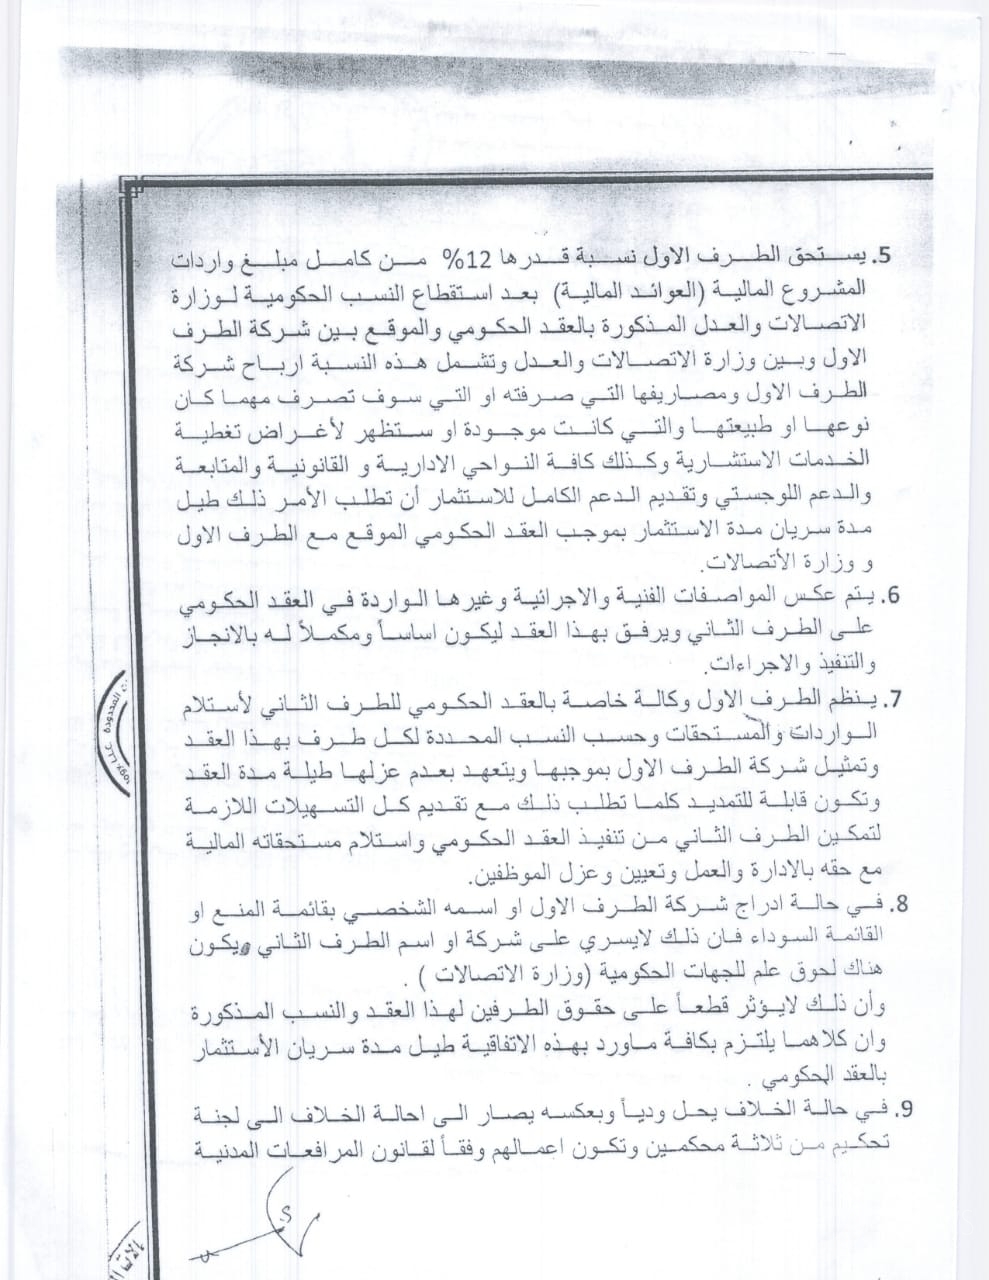 5. يستحق الطرف الاول نسبة قدرها 12% من كامل مبلغ واردات
المشروع المالية (العوائد المالية) بعد استقطاع النسب الحكومية لوزارة
الاتصالات والعدل المذكورة بالعقد الحكومي والموقع بين شركة الطرف
الاول وبين وزارة الاتصالات والعدل وتشمل هذه النسبة ارباح شركة
الطرف الاول ومصاريفها التي صرفته او التي سوف تصرف مهما كان
نوعها او طبيعتها والتي كانت موجودة او ستظهر لأغراض تغطية
الخدمات الاستشارية وكذلك كافة النواحي الادارية و القانونية والمتابعة
والدعم اللوجستي وتقديم الدعم الكامل للاستثمار أن تطلب الأمر ذلك طيل
مدة سريان مدة الاستثمار بموجب العقد الحكومي الموقع مع الطرف الاول
و وزارة الأتصالات.
6. يتم عكس المواصفات الفنية والاجرائية وغيرها الواردة في العقد الحكومي
على الطرف الثاني ويرفق بهذا العقد ليكون اساساً ومكملاً له بالانجاز
والتنفيذ والاجراءات.
7. ينظم الطرف الاول وكالة خاصة بالعقد الحكومي للطرف الثاني لأستلام
الواردات والمستحقات وحسب النسب المحددة لكل طرف بهذا العقد
وتمثيل شركة الطرف الاول بموجبها ويتعهد بعدم عزلها طيلة مدة العقد
وتكون قابلة للتمديد كلما تطلب ذلك مع تقديم كل التسهيلات اللازمة
لتمكين الطرف الثاني من تنفيذ العقد الحكومي واستلام مستحقاته المالية
مع حقه بالادارة والعمل وتعيين وعزل الموظفين.
8. في حالة ادراج شركة الطرف الاول او اسمه الشخصي بقائمة المنع او
القائمة السوداء فان ذلك لايسري على شركة او اسم الطرف الثاني ويكون
هناك لحوق علم للجهات الحكومية (وزارة الاتصالات ) .
وأن ذلك لايؤثر قطعاً على حقوق الطرفين لهذا العقد والنسب المذكورة
وان كلاهما يلتزم بكافة ماورد بهذه الاتفاقية طيل مدة سريان الأستثمار
بالعقد الحكومي .
9. في حالة الخلاف يحل ودياً وبعكسه يصار الى احالة الخلاف الى لجنة
تحكيم من ثلاثة محكمين وتكون اعمالهم وفقاً لقانون المرافعات المدنية
المحدودة